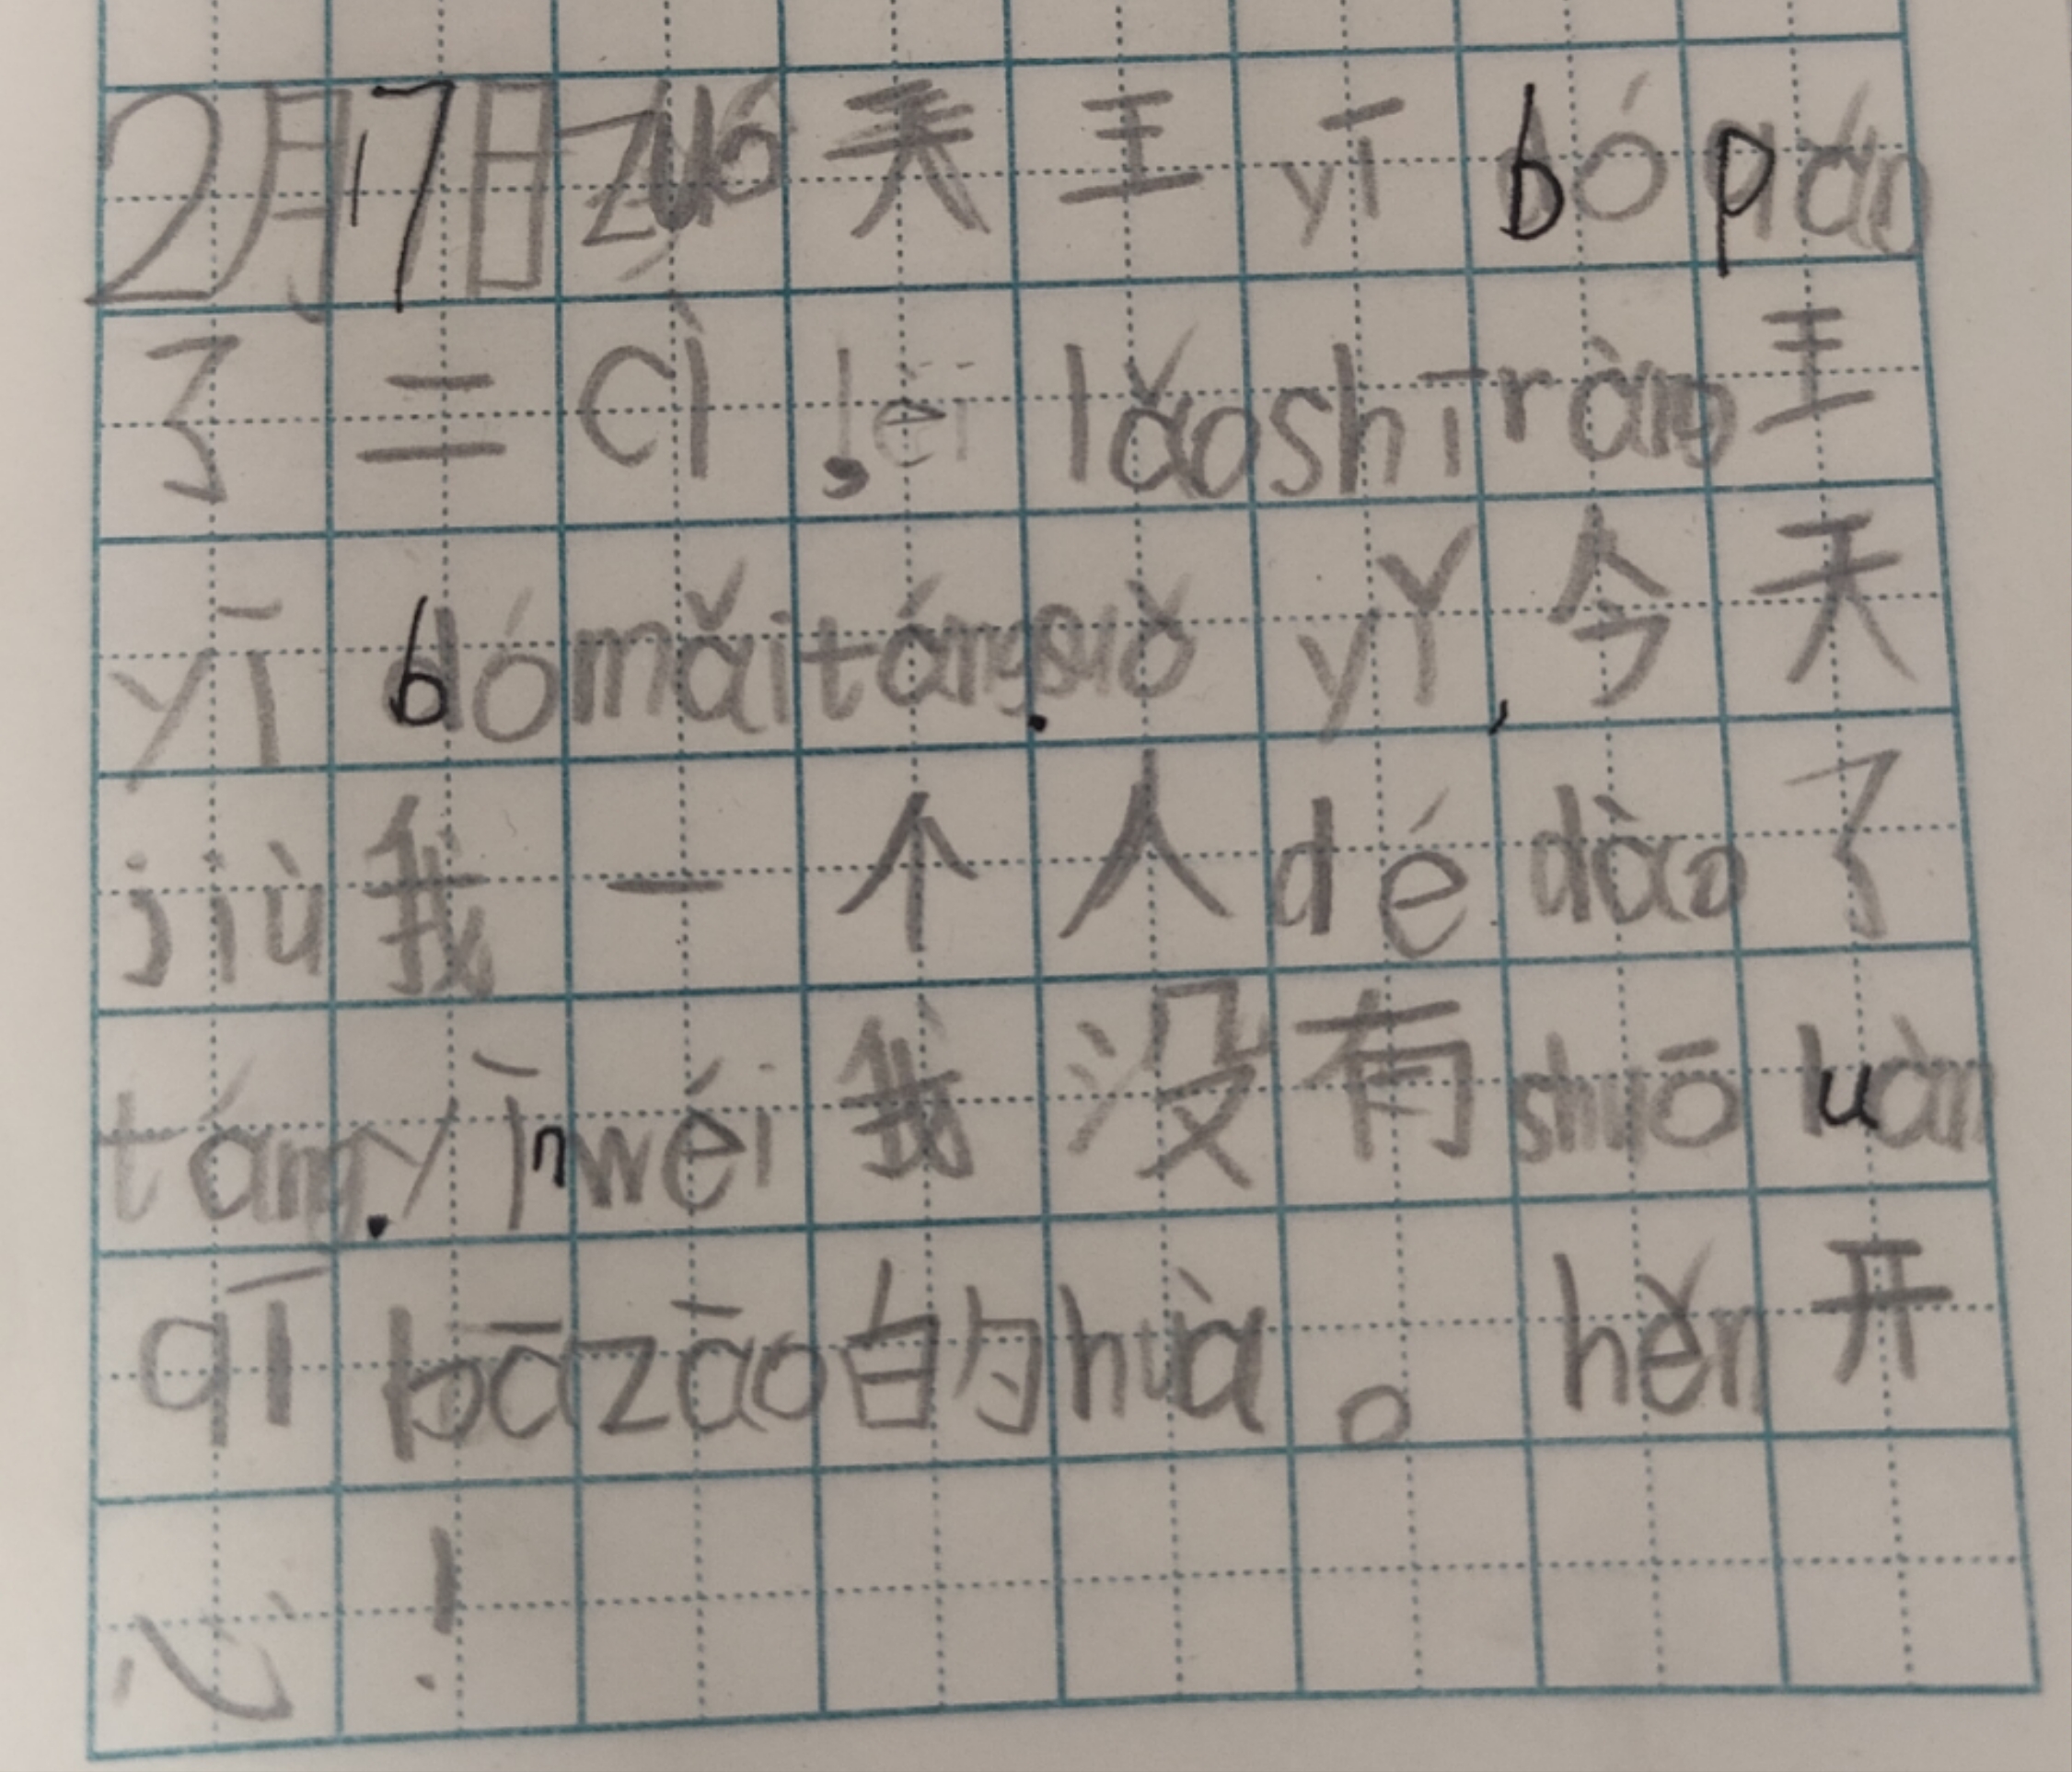 2月17日zuó天王yī bó pán
了二cì,lèi lǎoshī ràng王
yī bó mǎi táng.suǒ yǐ,今天
jiù我一个人dé dào了
táng.yīn wéi我没有shuō luàn
qī bā zāo的huà。hěn开
心!